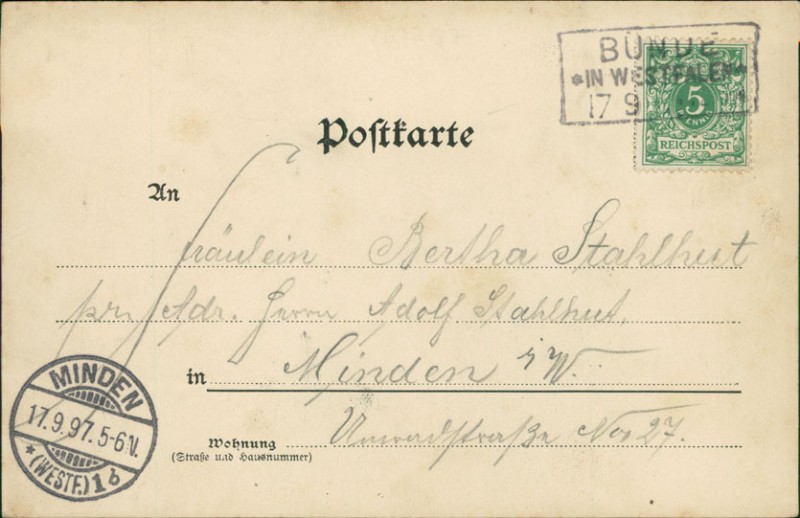 BÜNDE
*IN WESTFALEN*
17 9
5
REICHSPOST
Postkarte
An
Fräulein Bertha Stahlhut
pr. Adr. Herrn Adolf Stahlhut,
in Minden i/W.
Wohnung
(Straße und Hausnummer)
No 27.
MINDEN
17.9.97.5-6N.
*(WESTF.)1b